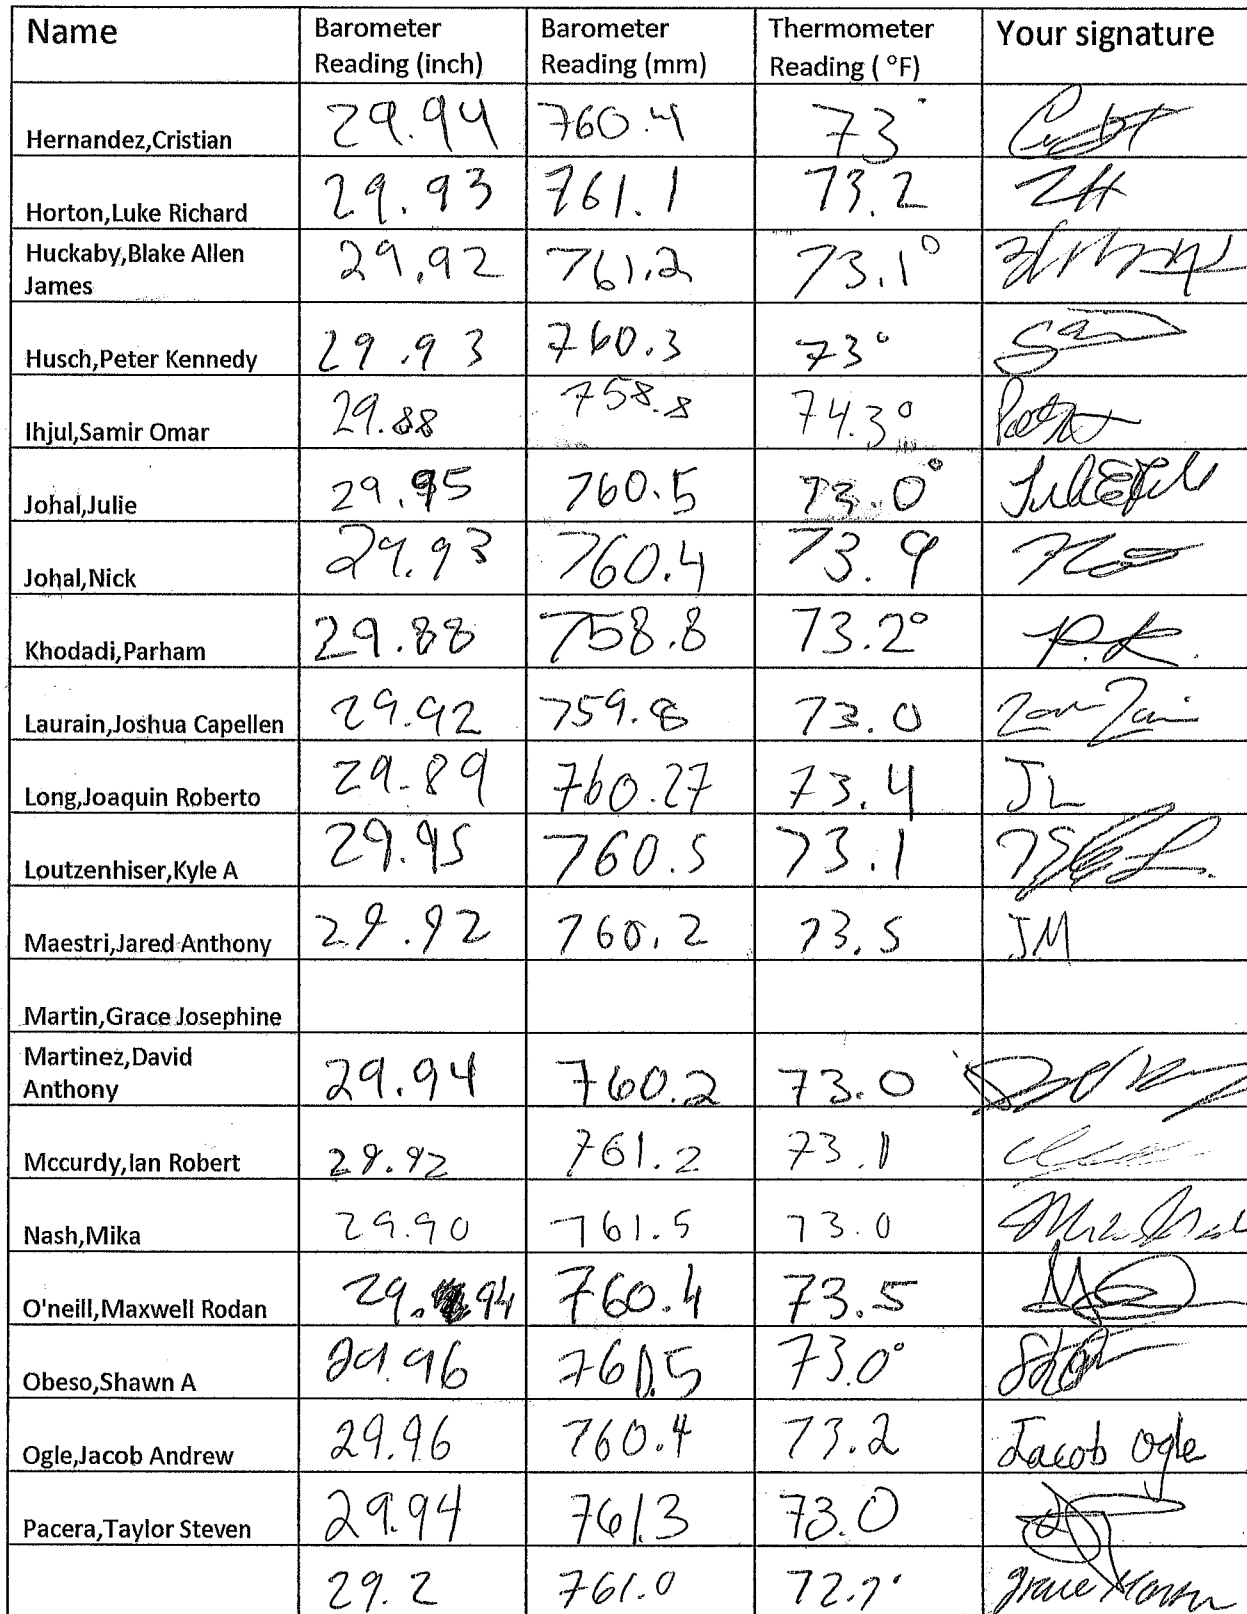 Name Barometer Reading (inch) Barometer Reading (mm) Thermometer Reading ( °F) Your signature
Hernandez,Cristian 29.94 760.4 73°
Horton,Luke Richard 29.93 761.1 73.2 ZH
Huckaby,Blake Allen James 29.92 761.2 73.1°
Husch,Peter Kennedy 29.93 760.3 73°
Ihjul,Samir Omar 29.88 758.8 74.3°
Johal,Julie 29.95 760.5 73.0°
Johal,Nick 29.93 760.4 73.9
Khodadi,Parham 29.88 758.8 73.2° P.K.
Laurain,Joshua Capellen 29.92 759.8 73.0
Long,Joaquin Roberto 29.89 760.27 73.4 JL
Loutzenhiser,Kyle A 29.95 760.5 73.1
Maestri,Jared Anthony 29.92 760.2 73.5 JM
Martin,Grace Josephine
Martinez,David Anthony 29.94 760.2 73.0
Mccurdy,Ian Robert 29.92 761.2 73.1
Nash,Mika 29.90 761.5 73.0
O'neill,Maxwell Rodan 29.94 760.4 73.5
Obeso,Shawn A 29.96 73.0°
Ogle,Jacob Andrew 29.96 760.4 73.2 Jacob Ogle
Pacera,Taylor Steven 29.94 761.3 73.0
29.2 761.0 Grace